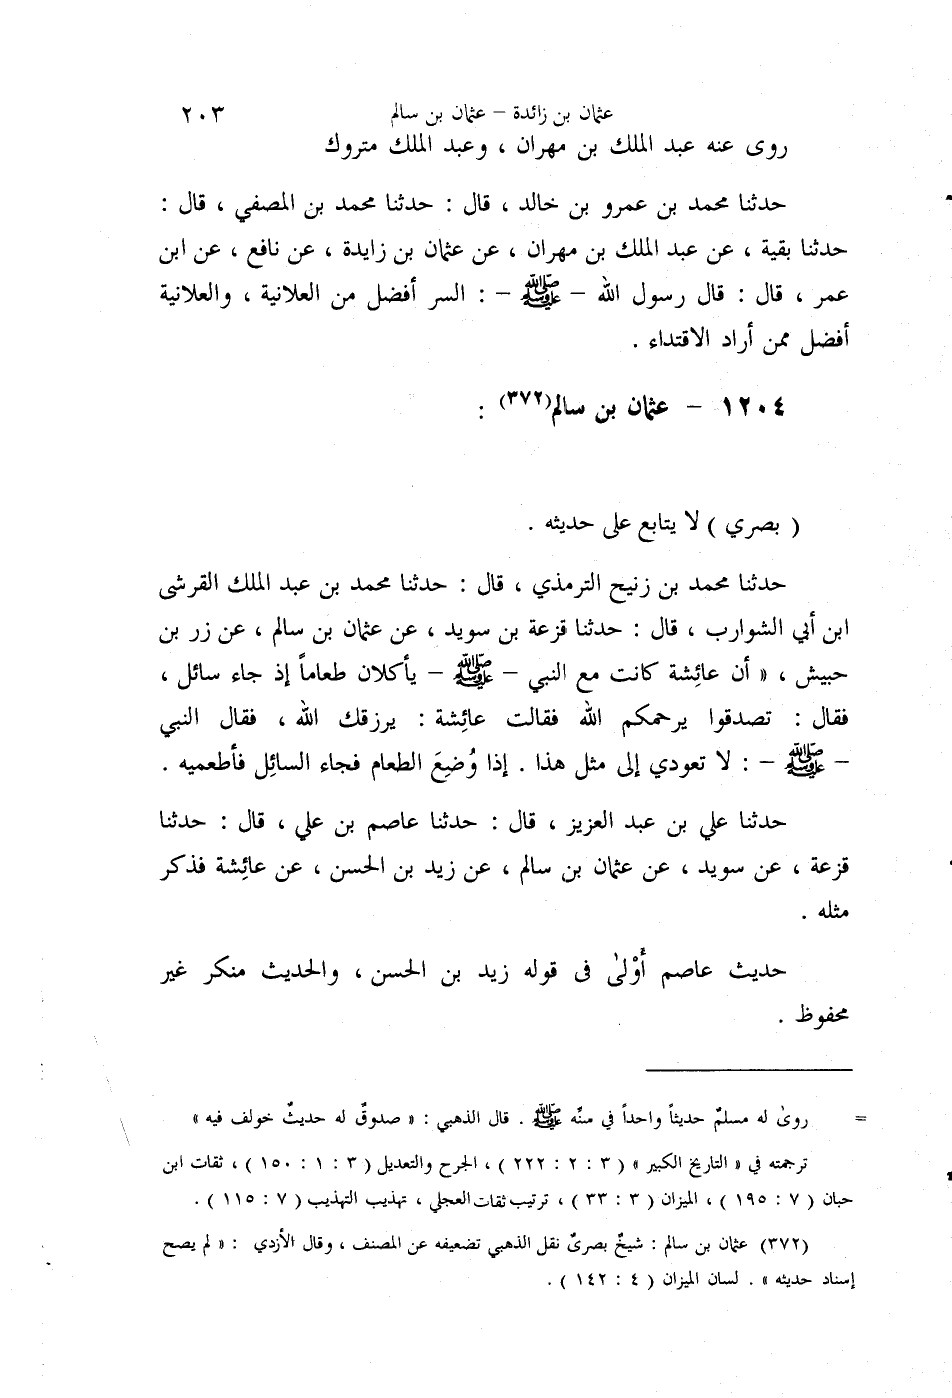 عثمان بن زائدة – عثمان بن سالم ٢٠٣
روى عنه عبد الملك بن مهران ، وعبد الملك متروك
حدثنا محمد بن عمرو بن خالد ، قال : حدثنا محمد بن المصفي ، قال :
حدثنا بقية ، عن عبد الملك بن مهران ، عن عثمان بن زايدة ، عن نافع ، عن ابن
عمر ، قال : قال رسول الله – ﷺ – : السر أفضل من العلانية ، والعلانية
أفضل ممن أراد الاقتداء .
١٢٠٤ – عثمان بن سالم(٣٧٢) :
( بصري ) لا يتابع على حديثه .
حدثنا محمد بن زنيح الترمذي ، قال : حدثنا محمد بن عبد الملك القرشى
ابن أبي الشوارب ، قال : حدثنا قزعة بن سويد ، عن عثمان بن سالم ، عن زر بن
حبيش ، « أن عائشة كانت مع النبي – ﷺ – يأكلان طعاماً إذ جاء سائل ،
فقال : تصدقوا يرحمكم الله فقالت عائشة : يرزقك الله ، فقال النبي
– ﷺ – : لا تعودي إلى مثل هذا . إذا وُضِعَ الطعام فجاء السائل فأطعميه .
حدثنا علي بن عبد العزيز ، قال : حدثنا عاصم بن علي ، قال : حدثنا
قزعة ، عن سويد ، عن عثمان بن سالم ، عن زيد بن الحسن ، عن عائشة فذكر
مثله .
حديث عاصم أَوْلىٰ فى قوله زيد بن الحسن ، والحديث منكر غير
محفوظ .
= روىٰ له مسلمٌ حديثاً واحداً في منِّه ﷺ . قال الذهبي : « صدوقٌ له حديثٌ خولف فيه »
ترجمته في « التاريخ الكبير » ( ٣ : ٢ : ٢٢٢ ) ، الجرح والتعديل ( ٣ : ١ : ١٥٠ ) ، ثقات ابن
حبان ( ٧ : ١٩٥ ) ، الميزان ( ٣ : ٣٣ ) ، ترتيب ثقات العجلي ، تهذيب التهذيب ( ٧ : ١١٥ ) .
(٣٧٢) عثمان بن سالم : شيخٌ بصرىٌ نقل الذهبي تضعيفه عن المصنف ، وقال الأزدي : « لم يصح
إسناد حديثه » . لسان الميزان ( ٤ : ١٤٢ ) .